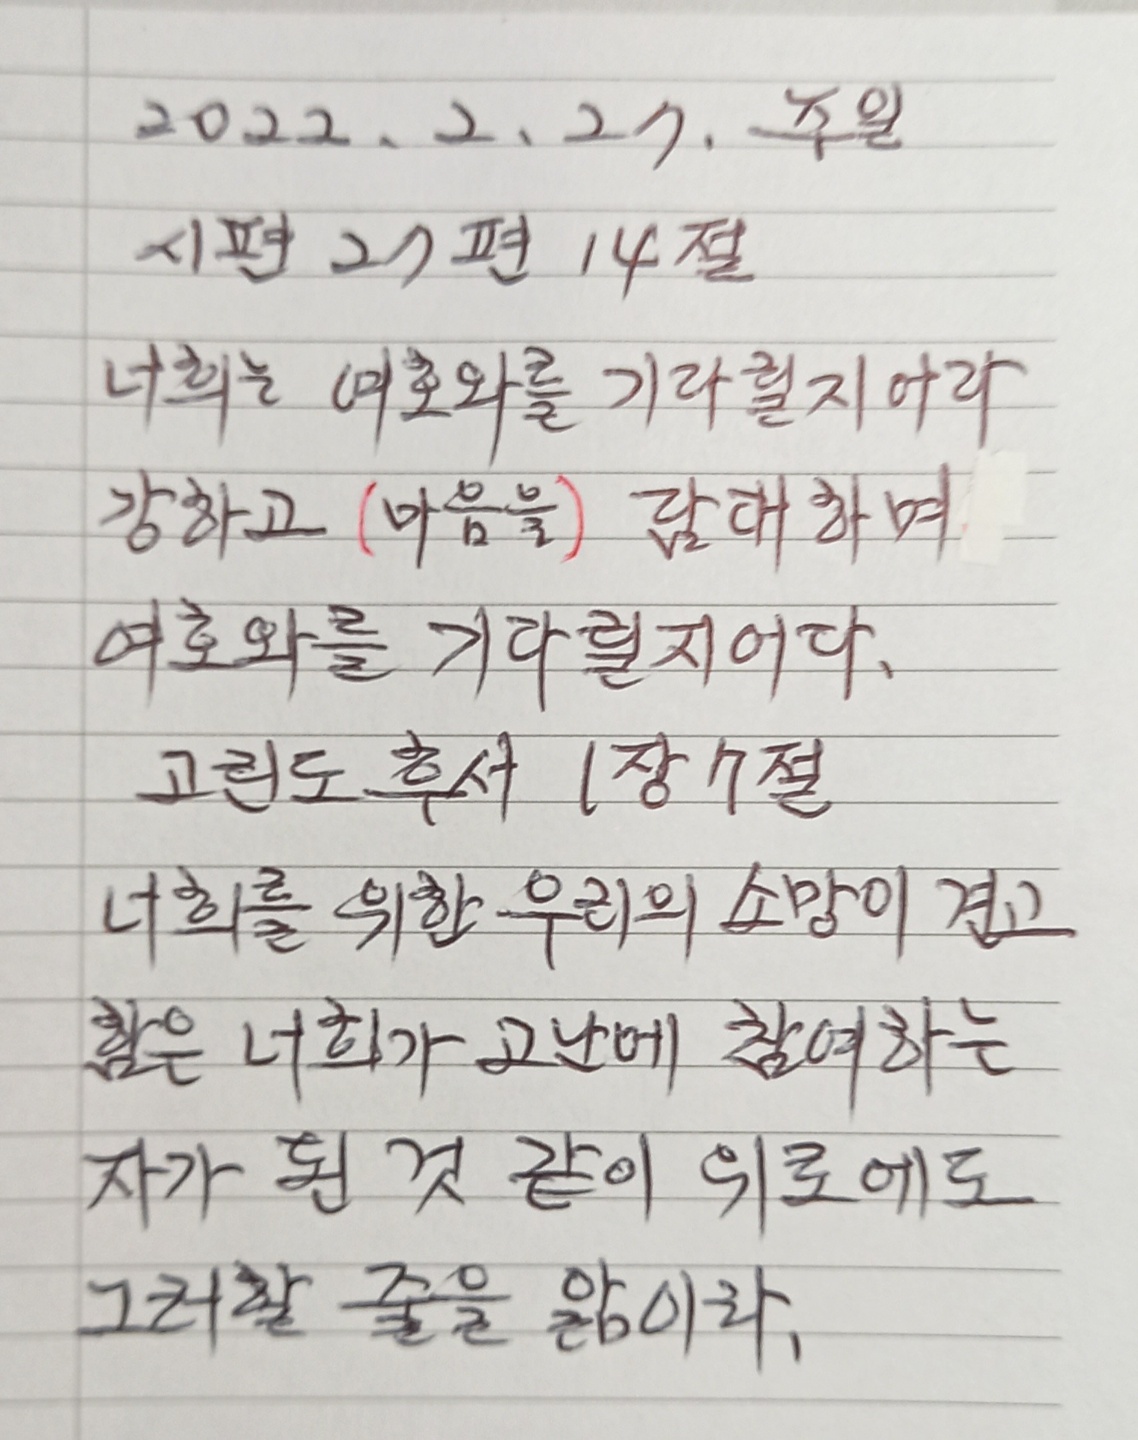 2022. 2. 27. 주일
시편 27편 14절
너희는 여호와를 기다릴지어다
강하고 (마음을) 담대하며
여호와를 기다릴지어다.
고린도후서 1장 7절
너희를 위한 우리의 소망이 견고
함은 너희가 고난에 참여하는
자가 된 것 같이 위로에도
그러할 줄을 앎이라.